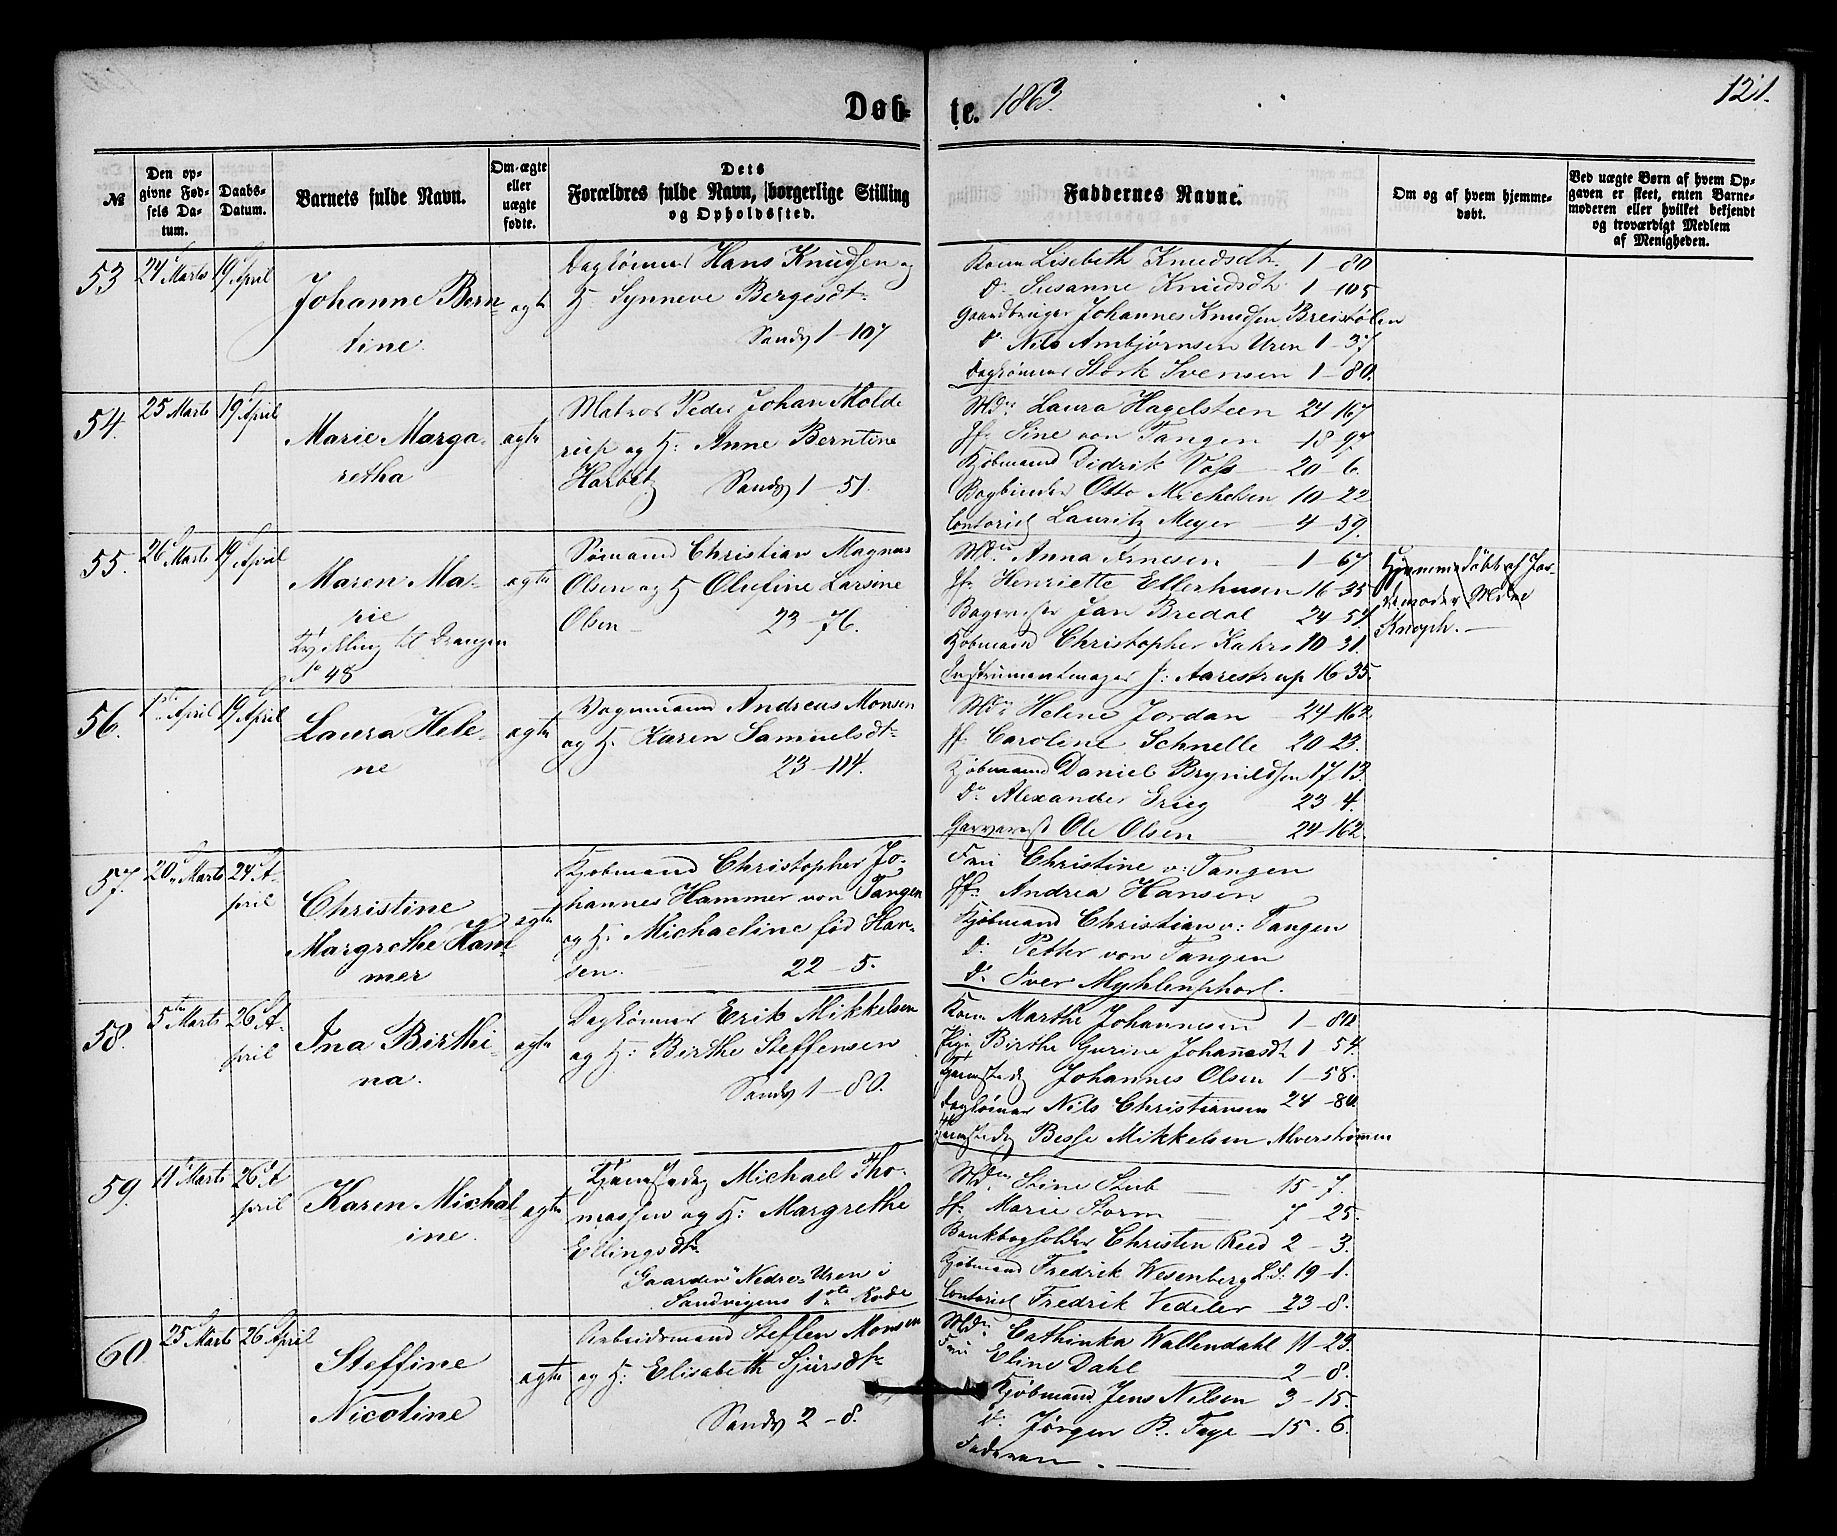 Døbte. 1863.
121.
№
Den opgivne Fødsels Datum.
Daabs-Datum.
Barnets fulde Navn.
Om ægte eller uægte fødte.
Dets Forældres fulde Navn, borgerlige Stilling og Opholdssted.
Faddernes Navne.
Om og af hvem hjemmedøbt.
Ved uægte Børn af hvem Opgaven er skeet, enten Barnemoderen eller hvilket bekjendt og troværdigt Medlem af Menigheden.
53 24 Marts 19 April
Johanne Bern-
tine
ægte
Daglønner Hans Knudsen og
H. Synneve Bergesdt.
Sandv 1-107
Kone Lisebeth Knudsdt. 1-80
Do Susanne Knudsdt 1-105
Gaardbruger Johannes Knudsen Breistølen
Do Nils Ambjørnsen Uren 1-37
Daglønner Stork Ivensen 1-80.
54. 25 Marts 19 April
Marie Marga-
retha
ægte
Matros Peder Johan Molde
rup og H: Anne Berntine
Harbitz Sandv 1-51.
Md. Laura Hagelsteen 24-167
Jfr Sine von Tangen 18-97.
Kjøbmand Didrik Voss 20-6.
Bogbinder Otto Michelsen 10-22
Contorist Lauritz Meyer 4-59.
55. 26 Marts 19 April
Maren Ma-
rie
Tvilling til Drengen
No 48
ægte
Sømand Christian Magnus
Olsen og H Olufine Larsine
Olsen 23-76.
Md. Anna Arnesen 1-67
Jfr Henriette Ellerhusen 16-35
Bagermstr Jan Bredal 24-57
Kjøbmand Christopher Kahrs 10-31.
Instrumentmager J: Aarestrup 16-35.
Hjemmedöbt af Jor-
demoder Mdme
Knoph.
56. 1ste April 19 April
Laura Hele-
ne
ægte
Vognmand Andreas Monsen
og H. Karen Samuelsdt
23-114.
Md. Helene Jordan 24-162
Jfr Caroline Schnelle 20-23.
Kjøbmand Daniel Brynildsen 17-13.
Do Alexander Grieg 23-4.
Garvermstr Ole Olsen 24-162.
57. 20 Marts 24 A-
pril
Christine
Margrethe Ham-
mer
ægte
Kjøbmand Christopher Jo-
hannes Hammer von Tangen
og H: Michaeline fød Han-
sen. 22-5.
Fru Christine v: Tangen
Jfr. Andrea Hansen
Kjøbmand Christian v: Tangen
Do Petter von Tangen
Do Iver Myhlenphort.
58. 5te Marts 26 A-
pril
Ina Birthi-
na.
ægte
Daglønner Erik Mikkelsen
og H: Birthe Steffensen
Sandv 1-80.
Kone Marthe Johannesen 1-80
Pige Birthe Gurine Johannesdt 1-54.
Johannes Olsen 1-58.
Daglønner Nils Christiansen 24-80
Besse Mikkelsen Alverstrømen
59. 11 Marts 26 A
pril
Karen Michal-
ine.
ægte
Michael Tho-
massen og H: Margrethe
Ellingsdt.
Gaarden "Nedre-Uren" i
Sandvigens 1ste Rode
Md. Stine Stub 15-7.
Jfr. Marie Storm 7-25.
Bankbogholder Christen Reed 2-3.
Kjøbmand Fredrik Wesenberg L.S. 19-1.
Contorist Fredrik Vedeler 23-8.
60. 25 Marts 26 April
Steffine
Nicoline
ægte
Arbeidsmand Steffen Monsen
og H: Elisabeth Sjursdt
Sandv 2-8.
Md. Cathinka Wallendahl 11-23.
Fru Eline Dahl 2-8.
Kjøbmand Jens Nilsen 3-15.
Do. Jørgen B. Faye 15-6.
Faderen.